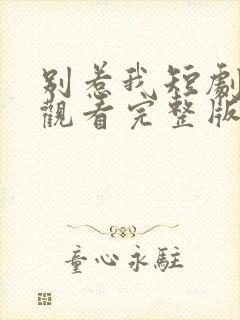 別惹我短劇
觀看完整版
童心永駐